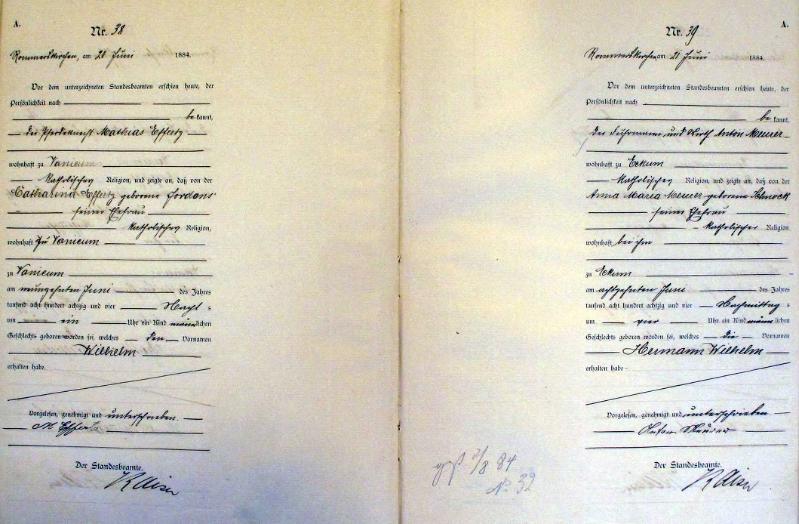 A.
Nr. 38
Rommerskirchen, am 20 Juni 1884.
Vor dem unterzeichneten Standesbeamten erschien heute, der
Persönlichkeit nach
be kannt,
der Pferdeknecht Mathias Effertz
wohnhaft zu Vanicum
katholischer Religion, und zeigte an, daß von der
Catharina Effertz geborene Jordans
seiner Ehefrau
katholischer Religion,
wohnhaft zu Vanicum
zu Vanicum
am neunzehnten Juni des Jahres
tausend acht hundert achtzig und vier Nacht
um ein Uhr ein Kind männlichen
Geschlechts geboren worden sei, welches den Vornamen
Wilhelm
erhalten habe
Vorgelesen, genehmigt und unterschrieben
M Effertz
Der Standesbeamte.
Kaiser
A.
Nr. 39
Rommerskirchen am 21 Juni 1884.
Vor dem unterzeichneten Standesbeamten erschien heute, der
Persönlichkeit nach
be kannt,
der Fuhrmann und Wirth Anton Meurer
wohnhaft zu Eckum
katholischer Religion, und zeigte an, daß von der
Anna Maria Meurer geborene Schnock
seiner Ehefrau
katholischer Religion
wohnhaft bei ihm
zu Eckum
am achtzehnten Juni des Jahres
tausend acht hundert achtzig und vier Nachmittag
um vier Uhr ein Kind männlichen
Geschlechts geboren worden sei, welches die Vornamen
Hermann Wilhelm
erhalten habe
Vorgelesen, genehmigt und unterschrieben
Anton Meurer
Der Standesbeamte.
Kaiser
2/8 84
No. 32